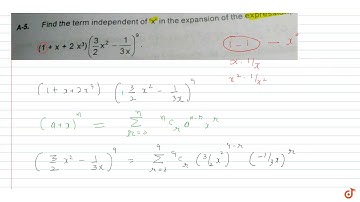 A-5. Find the term independent of 'x' in the expansion of the expression
(1 + x + 2 x³) (3/2 x² - 1/3x)⁹.
(1 - 1) — x⁰
x · 1/x
x² · 1/x²
(1 + x + 2x³) (1 3/2 x² - 1/3x)⁹
(a + x)ⁿ = Σ_{r=0}^{n} ⁿC_r a^{n-r} x^r
(3/2 x² - 1/3x)⁹ = Σ_{r=0}^{9} ⁹C_r (3/2 x²)^{9-r} (-1/3x)^r